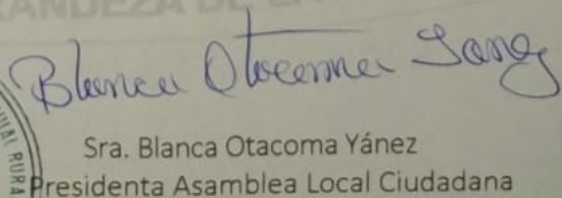 Blanca Otacoma
Sra. Blanca Otacoma Yánez
Presidenta Asamblea Local Ciudadana